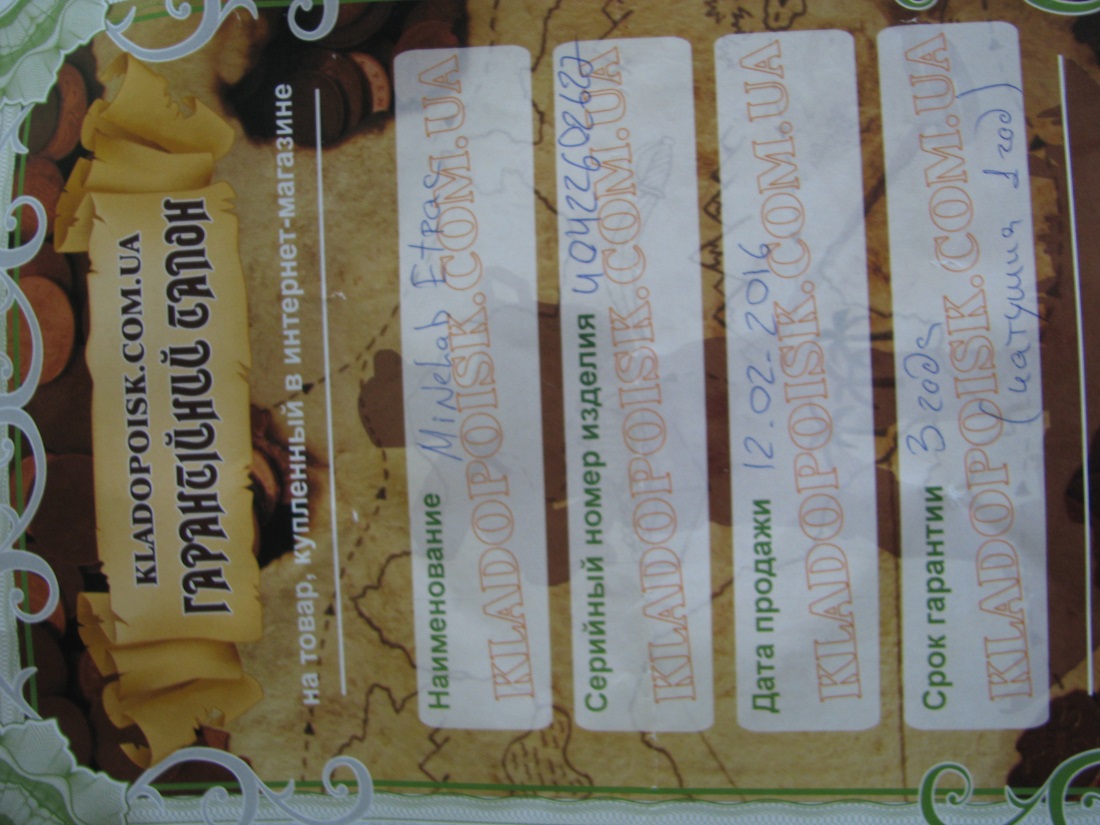 KLADOPOISK.COM.UA
ГАРАНТІЙНИЙ ТАЛОН
на товар, купленный в интернет-магазине
Наименование MiNeLab Etrac
KLADOPOISK.COM.UA
Серийный номер изделия
KLADOPOISK.COM.UA
Дата продажи 12.02.2016
KLADOPOISK.COM.UA
Срок гарантии 3 года
KLADOPOISK.COM.UA
(катушка 1 год)